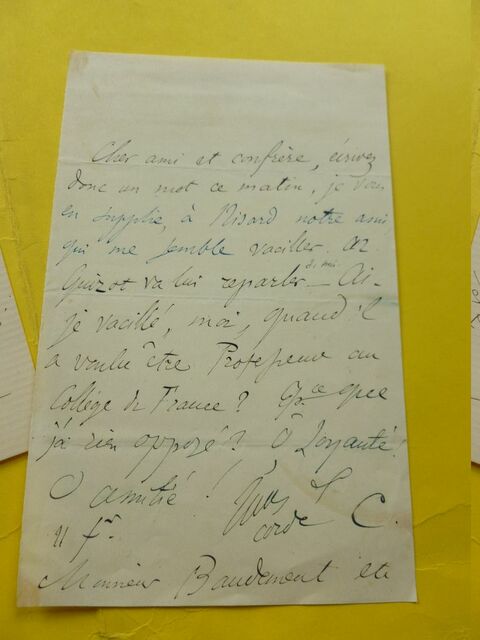 Cher ami et confrère, écrivez
donc un mot ce matin, je vous
en supplie, à Nisard notre ami
qui me semble vaciller. M.
Guizot va lui reparler de moi — Ai-
je vacillé, moi, quand il
a voulu être Professeur au
Collège de France? Est-ce que
j'ai rien opposé? O Loyauté!
O amitié!
corde C.
21 fr.
Monsieur Baudement etc